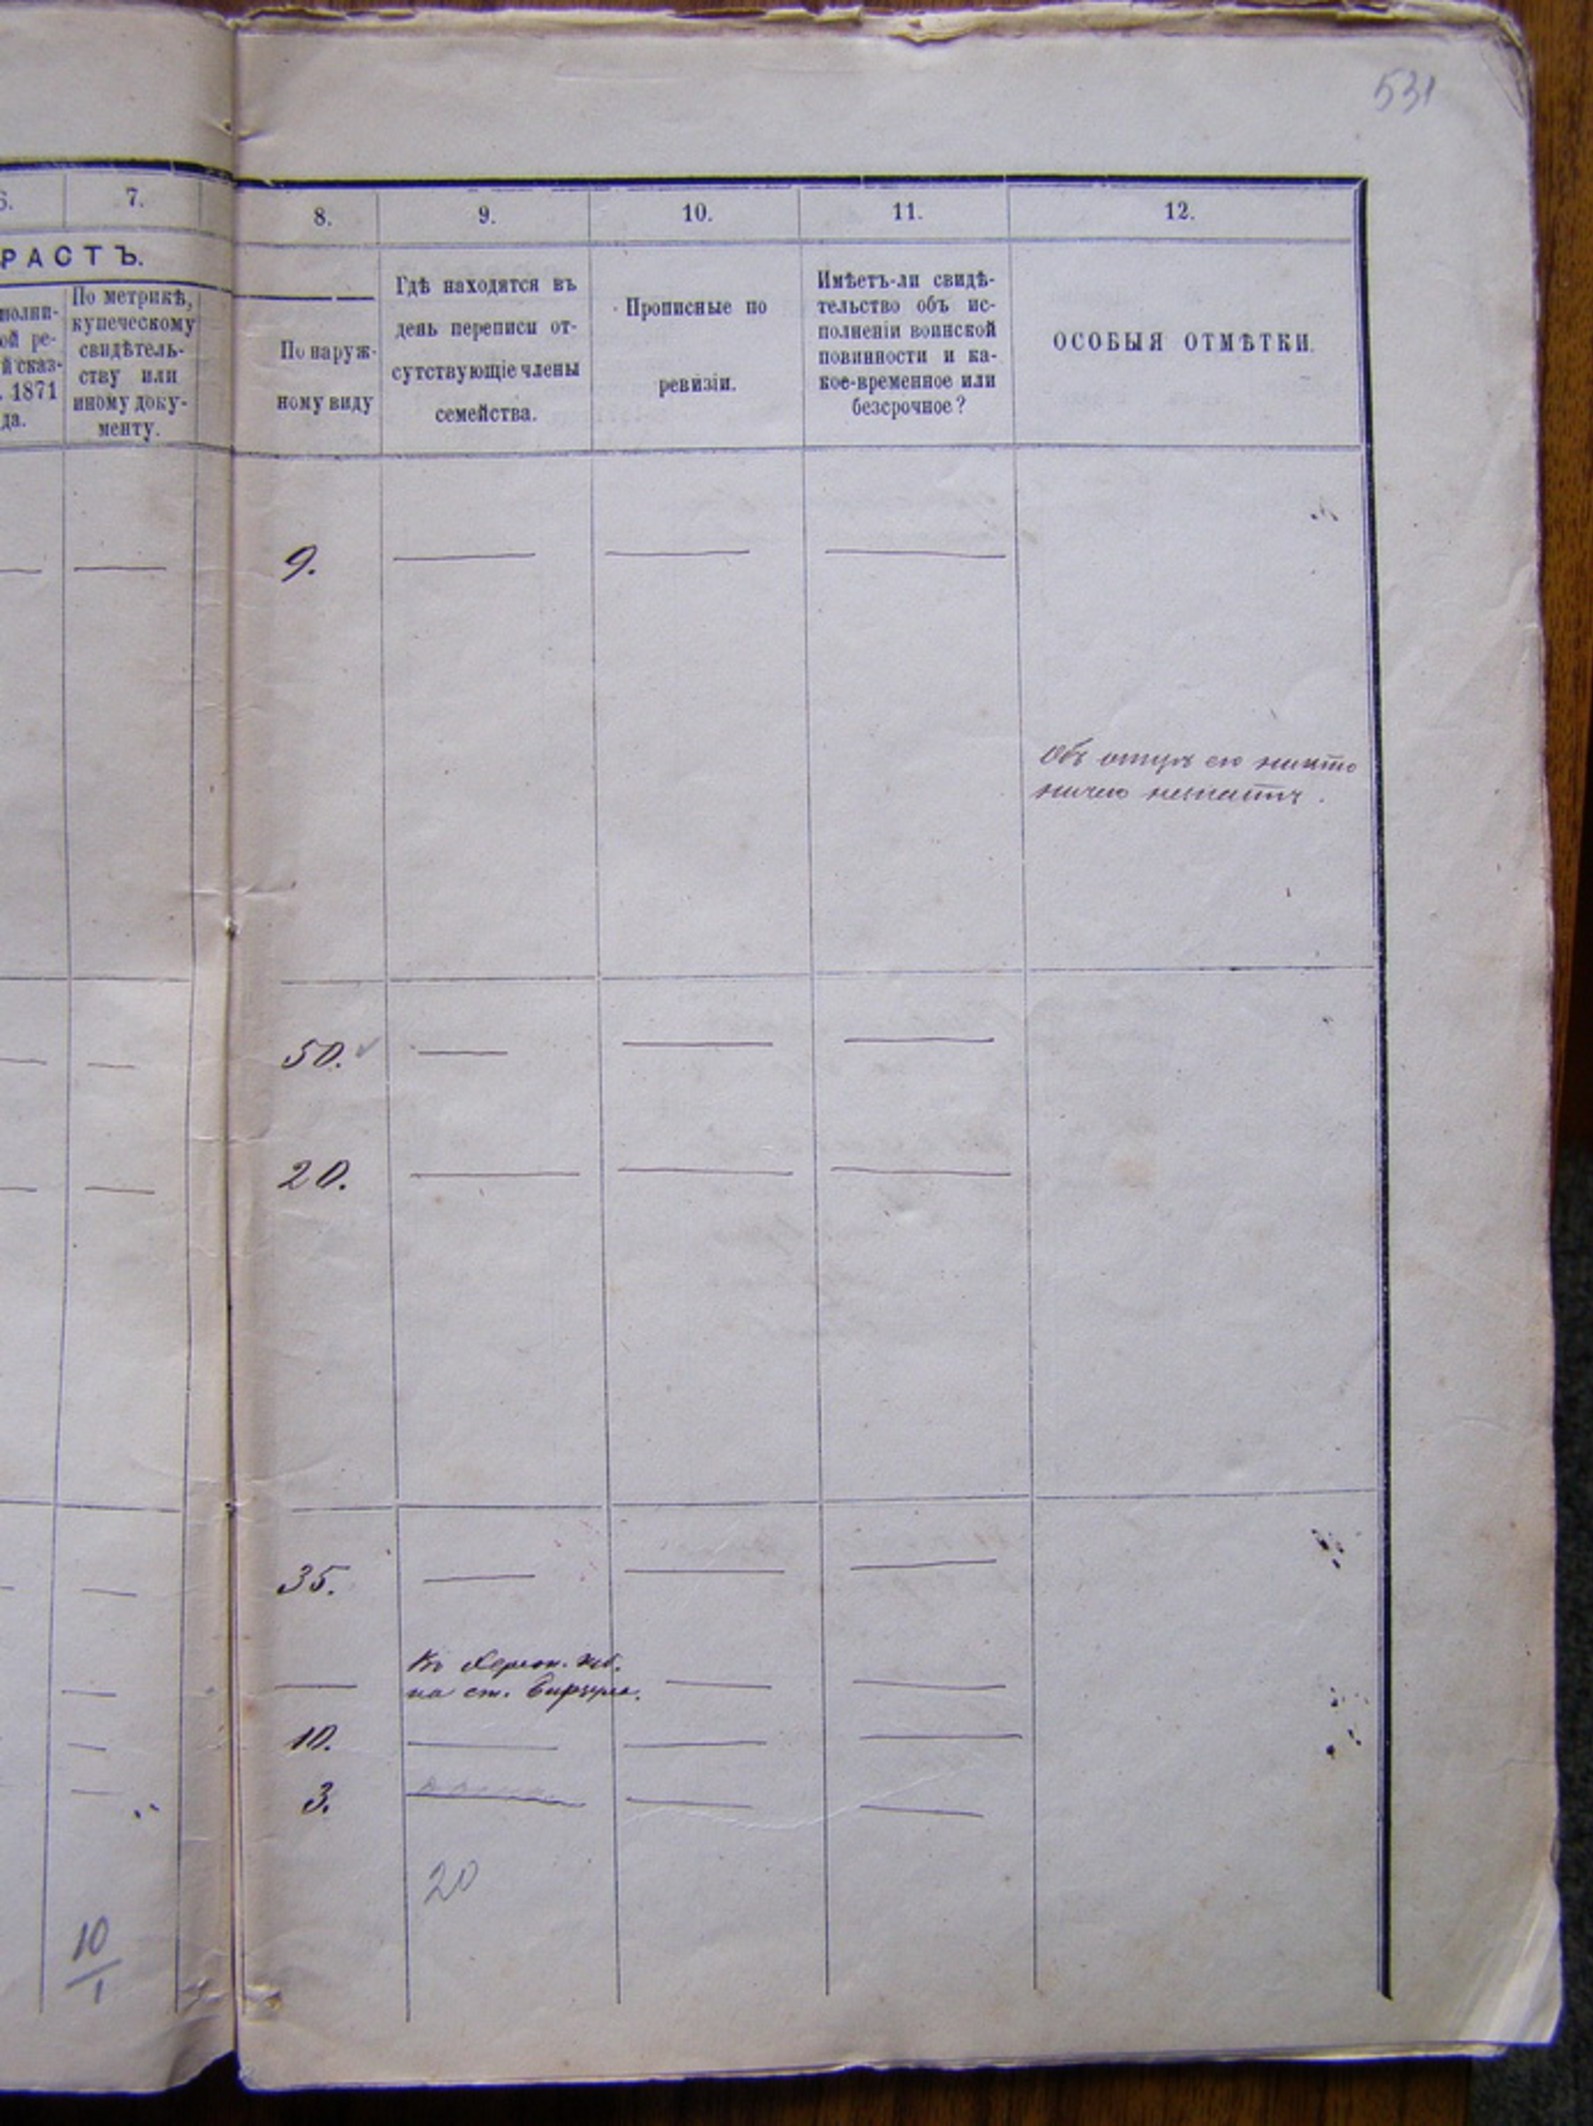 531
6. 7. 8. 9. 10. 11. 12.
РАСТЪ.
полни-
ой ре-
й сказ-
. 1871
да.
По метрикѣ,
купеческому
свидѣтель-
ству или
иному доку-
менту.
По наруж-
ному виду
Гдѣ находятся въ
день переписи от-
сутствующіе члены
семейства.
Прописные по
ревизіи.
Имѣетъ-ли свидѣ-
тельство объ ис-
полненіи воинской
повинности и ка-
кое-временное или
безсрочное?
ОСОБЫЯ ОТМѢТКИ.
9.
Объ отцѣ его никто
ничего незнаетъ.
50.
20.
35.
Въ Херсон. губ.
на ст. Бирзула.
10.
3.
20
10
1